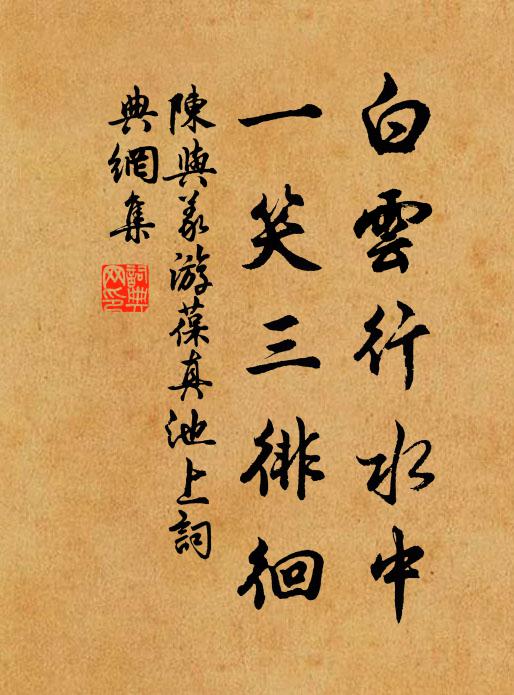 白雲行水中
一笑三徘徊
陳與義游葆真池上詞
典網集
詞典
网印